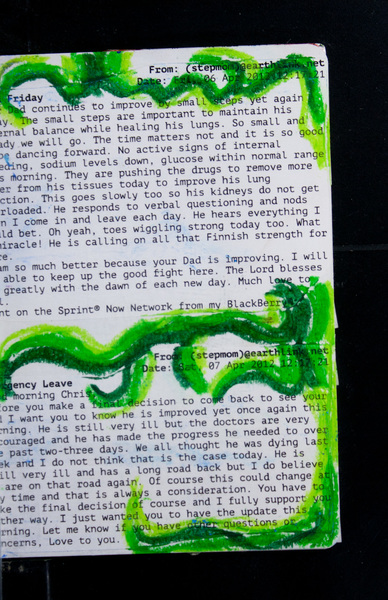 From: (stepmom)@earthlink.net
Date: Fri, 06 Apr 2012 12:17:21
Friday
Dad continues to improve by small steps yet again
ay. The small steps are important to maintain his
ernal balance while healing his lungs. So small and
ady we will go. The time matters not and it is so good
be dancing forward. No active signs of internal
eeding, sodium levels down, glucose within normal range
s morning. They are pushing the drugs to remove more
er from his tissues today to improve his lung
ction. This goes slowly too so his kidneys do not get
rloaded. He responds to verbal questioning and nods
n I come in and leave each day. He hears everything I
uld bet. Oh yeah, toes wiggling strong today too. What
miracle! He is calling on all that Finnish strength for
re.
am so much better because your Dad is improving. I will
able to keep up the good fight here. The Lord blesses
greatly with the dawn of each new day. Much love to
l.
nt on the Sprint® Now Network from my BlackBerry®
From: (stepmom)@earthlink.net
Date: Sat, 07 Apr 2012 12:17:21
rgency Leave
d morning Chris,
fore you make a final decision to come back to see your
I want you to know he is improved yet once again this
rning. He is still very ill but the doctors are very
couraged and he has made the progress he needed to over
e past two-three days. We all thought he was dying last
ek and I do not think that is the case today. He is
ill very ill and has a long road back but I do believe
are on that road again. Of course this could change at
y time and that is always a consideration. You have to
ke the final decision of course and I fully support you
ther way. I just wanted you to have the update this
rning. Let me know if you have other questions or
ncerns, Love to you.